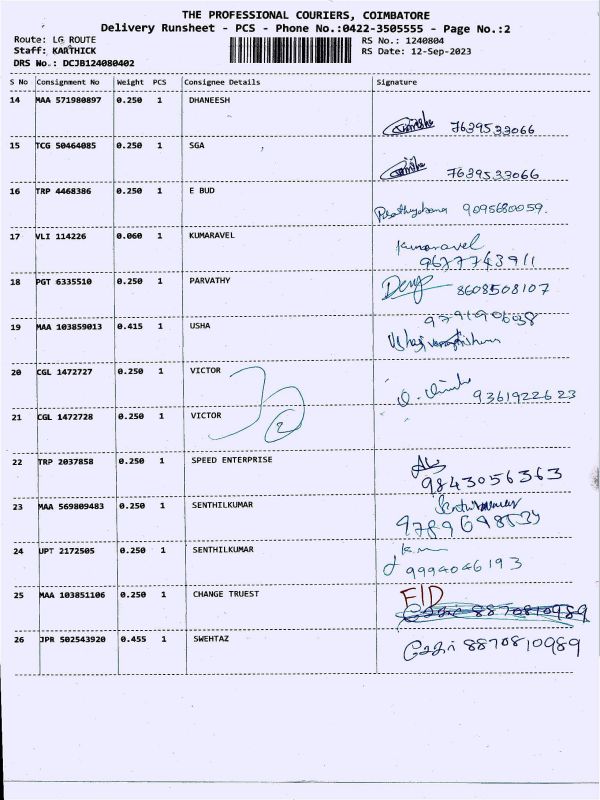 THE PROFESSIONAL COURIERS, COIMBATORE
Delivery Runsheet - PCS - Phone No.:0422-3505555 - Page No.:2
Route: LG ROUTE RS No.: 1240804
Staff: KARTHICK RS Date: 12-Sep-2023
DRS No.: DCJB124080402
S No Consignment No Weight PCS Consignee Details Signature
14 MAA 571980897 0.250 1 DHANEESH
7639533066
15 TCG 50464085 0.250 1 SGA
7639533066
16 TRP 4468386 0.250 1 E BUD
9095680059.
17 VLI 114226 0.060 1 KUMARAVEL Kumaravel
9677743911
18 PGT 6335510 0.250 1 PARVATHY
8608508107
19 MAA 103859013 0.415 1 USHA
20 CGL 1472727 0.250 1 VICTOR
9361922623
21 CGL 1472728 0.250 1 VICTOR
2
22 TRP 2037858 0.250 1 SPEED ENTERPRISE
9843056363
23 MAA 569809483 0.250 1 SENTHILKUMAR
24 UPT 2172505 0.250 1 SENTHILKUMAR
9994046193
25 MAA 103851106 0.250 1 CHANGE TRUEST
8870810989
26 JPR 502543920 0.455 1 SWEHTAZ
8870810989